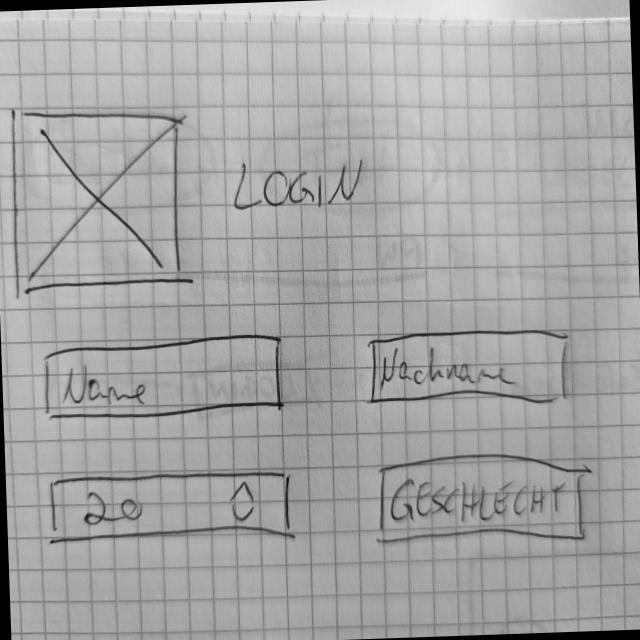 LOGIN
Name Nachname
20 0
GESCHLECHT